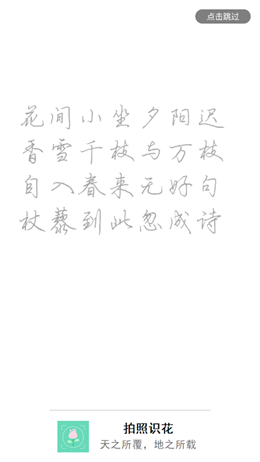 点击跳过
花间小坐夕阳迟
香雪千枝与万枝
自入春来无好句
杖藜到此忽成诗
拍照识花
天之所覆，地之所载